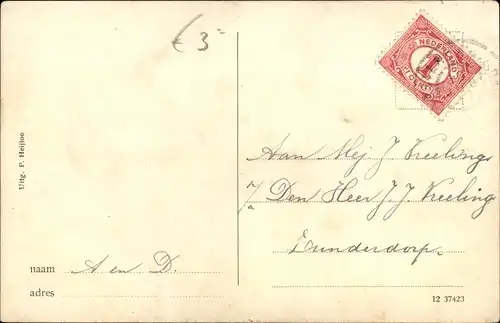 € 3-
NEDERLAND
1
CENT
Uitg. P. Heijloo
Aan Mej J Kreeling
p/a Den Heer J. J. Kreeling
Zunderdorp.
naam A en D.
adres
12 37423